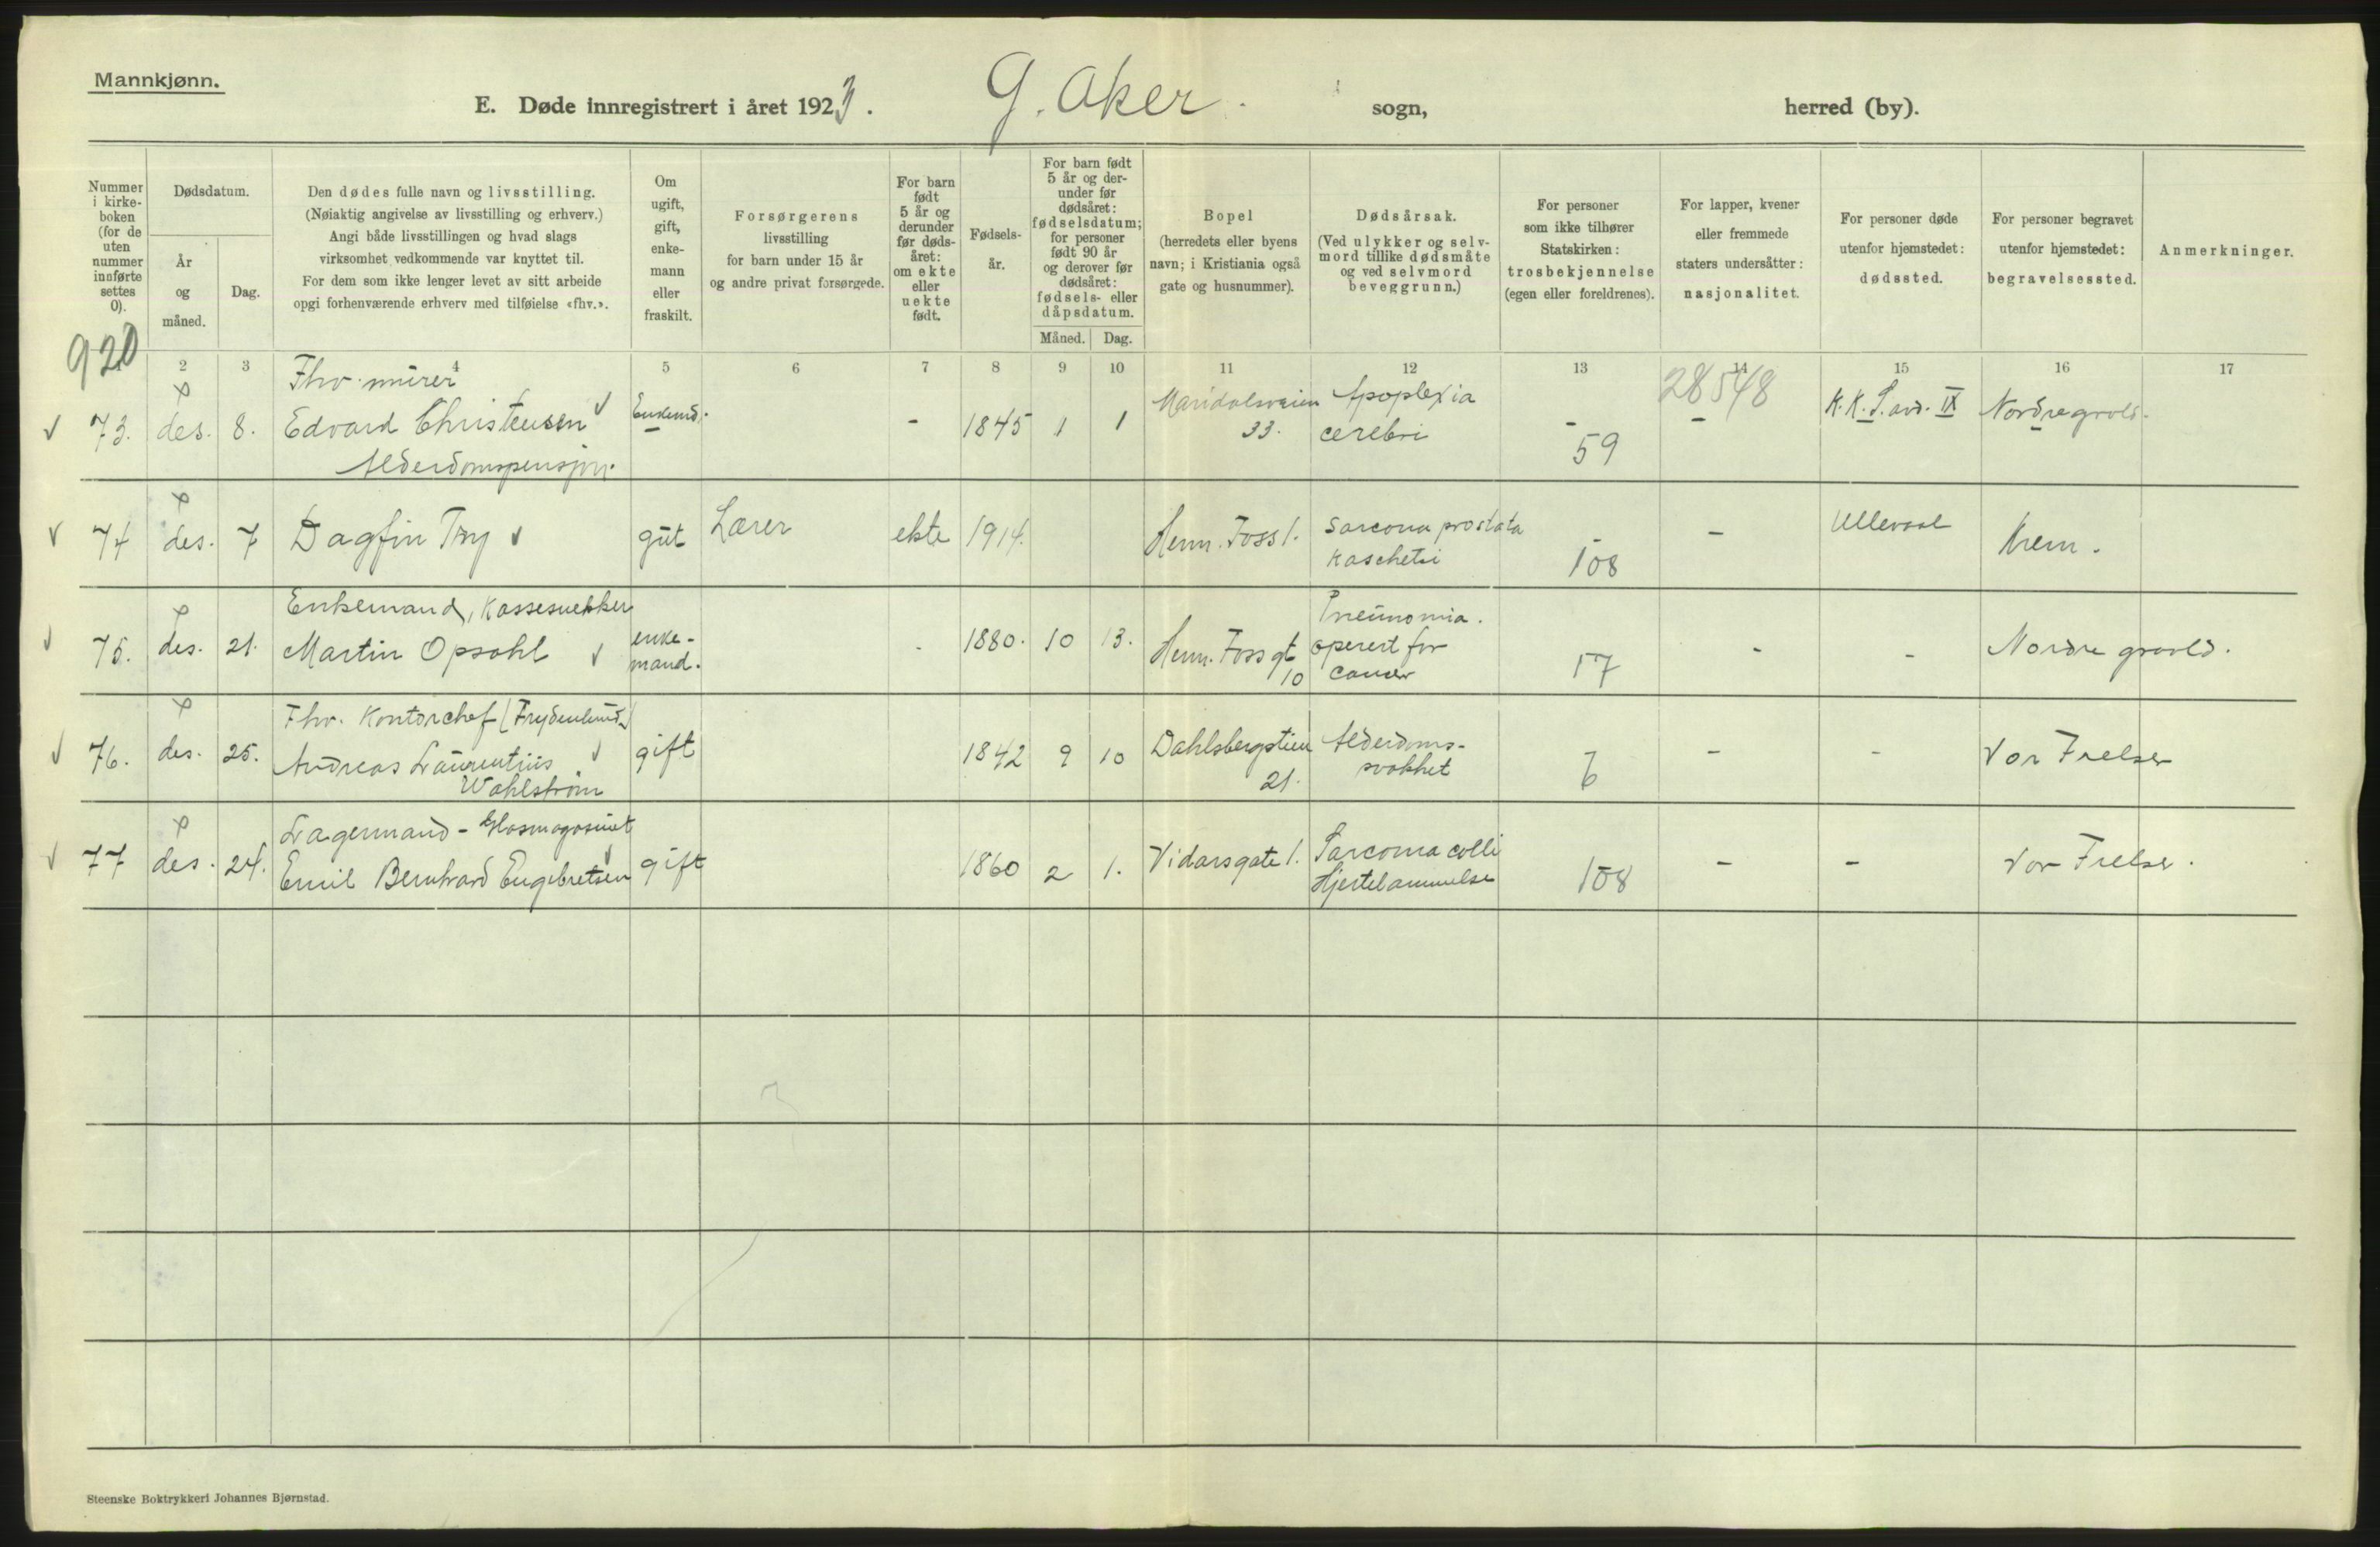 Mannkjønn.
E. Døde innregistrert i året 1923. G. Aker. sogn, herred (by).
Nummer i kirke-boken (for de uten nummer innførte settes 0).
Dødsdatum.
År og måned.
Dag.
Den dødes fulle navn og livsstilling.
(Nøiaktig angivelse av livsstilling og erhverv.)
Angi både livsstillingen og hvad slags
virksomhet vedkommende var knyttet til.
For dem som ikke lenger levet av sitt arbeide
opgi forhenværende erhverv med tilføielse «fhv.».
Om ugift, gift, enke-mann eller fraskilt.
Forsørgerens
livsstilling
for barn under 15 år
og andre privat forsørgede.
For barn født 5 år og derunder før døds-året: om ekte eller uekte født.
Fødsels-år.
For barn født 5 år og der-under før dødsåret: fødselsdatum; for personer født 90 år og derover før dødsåret: fødsels- eller dåpsdatum.
Måned. Dag.
Bopel
(herredets eller byens
navn; i Kristiania også
gate og husnummer).
Dødsårsak.
(Ved ulykker og selv-
mord tillike dødsmåte
og ved selvmord
beveggrunn.)
For personer
som ikke tilhører
Statskirken:
trosbekjennelse
(egen eller foreldrenes).
For lapper, kvener
eller fremmede
staters undersåtter:
nasjonalitet.
For personer døde
utenfor hjemstedet:
dødssted.
For personer begravet
utenfor hjemstedet:
begravelsessted.
Anmerkninger.
920
2 3 4 5 6 7 8 9 10 11 12 13 14 15 16 17
28548
Fhv. murer
73. des. 8. Edvard Christensen Enkemd. - 1845 1 1 Maridalsveien 33. Apoplexia cerebri - 59 - K.K.S. avd. IX Nordre gravld.
Alderdomspensjon.
74 des. 7 Dagfin Try gut Lærer ekte 1914. Henn. Foss 1. Sarcoma prostata Kascheksi - 108 - Ullevaal Krem.
Enkemand, Kassesnekker
75. des. 21. Martin Opsahl enke-mand. - 1880. 10 13. Henn. Foss gt 10 Pneumonia. operert for cancer 17 - - Nordre gravld.
Fhv. Kontorchef (Frydenlund)
76. des. 25. Andreas Laurentius Wahlstrøm gift 1842 9 10 Dahlsbergstien 21. Alderdoms-svakhet 6 - - Vor Frelser
Lagermand - Glasmagasinet
77 des. 24. Emil Bernhard Engebretsen gift 1860 2 1. Vidarsgate 1. Sarcoma colli Hjertelammelse 108 - - Vor Frelser.
Steenske Boktrykkeri Johannes Bjørnstad.